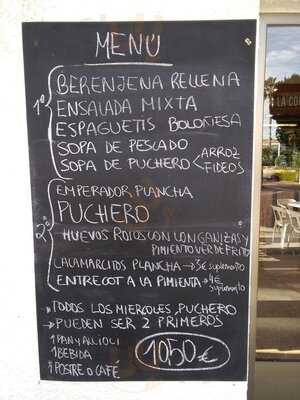 MENÚ
1º
BERENJENA RELLENA
ENSALADA MIXTA
ESPAGUETIS BOLOÑESA
SOPA DE PESCADO
SOPA DE PUCHERO < ARROZ
FIDEOS
2º
EMPERADOR PLANCHA
PUCHERO
HUEVOS ROTOS CON LONGANIZAS Y
PIMIENTO VERDE FRITO
CALAMARCITOS PLANCHA → 3€ suplemento
ENTRECOT A LA PIMIENTA → 4€
suplemento
→ TODOS LOS MIERCOLES, PUCHERO
→ PUEDEN SER 2 PRIMEROS
1 PAN Y ALLIOLI
1 BEBIDA
1 POSTRE O CAFE
10'50 €
LA CO